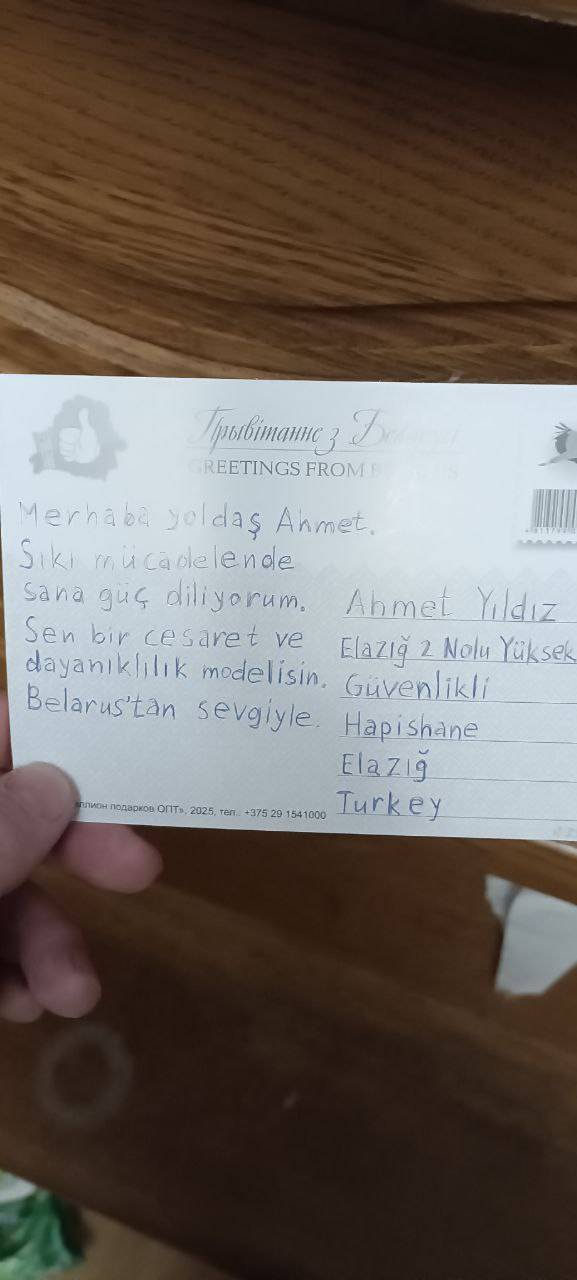 Прывітанне з Беларусі
GREETINGS FROM BELARUS
Merhaba yoldaş Ahmet.
Siki mücadelende
sana güç diliyorum.
Sen bir cesaret ve
dayanıklılık modelisin.
Belarus'tan sevgiyle.
Ahmet Yıldız
Elazığ 2 Nolu Yüksek
Güvenlikli
Hapishane
Elazığ
Turkey
ллион подарков ОПТ», 2025, тел.: +375 29 1541000